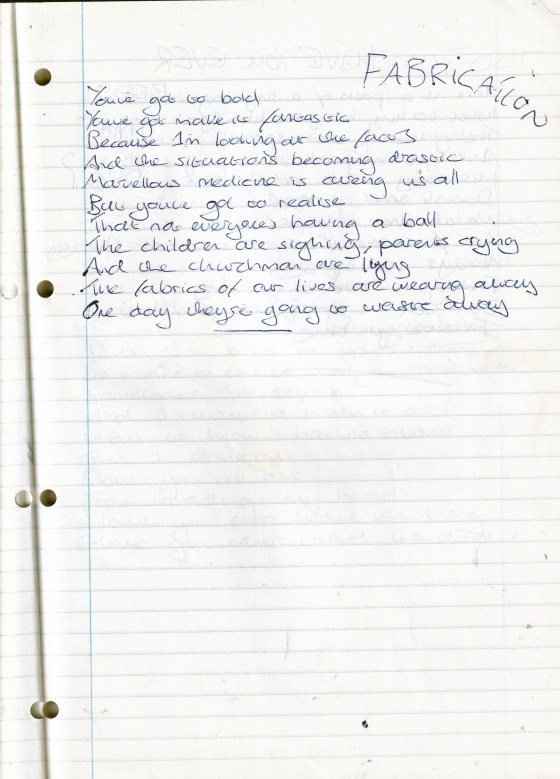 FABRICATION
You've got to bold
You've got make it fantastic
Because I'm looking at the faces
And the situations becoming drastic
Marvellous medicine is curing us all
But you've got to realise
That not everyones having a ball
The children are sighing, parents crying
And the churchman are lying
The fabrics of our lives are wearing away
One day they're going to waste away